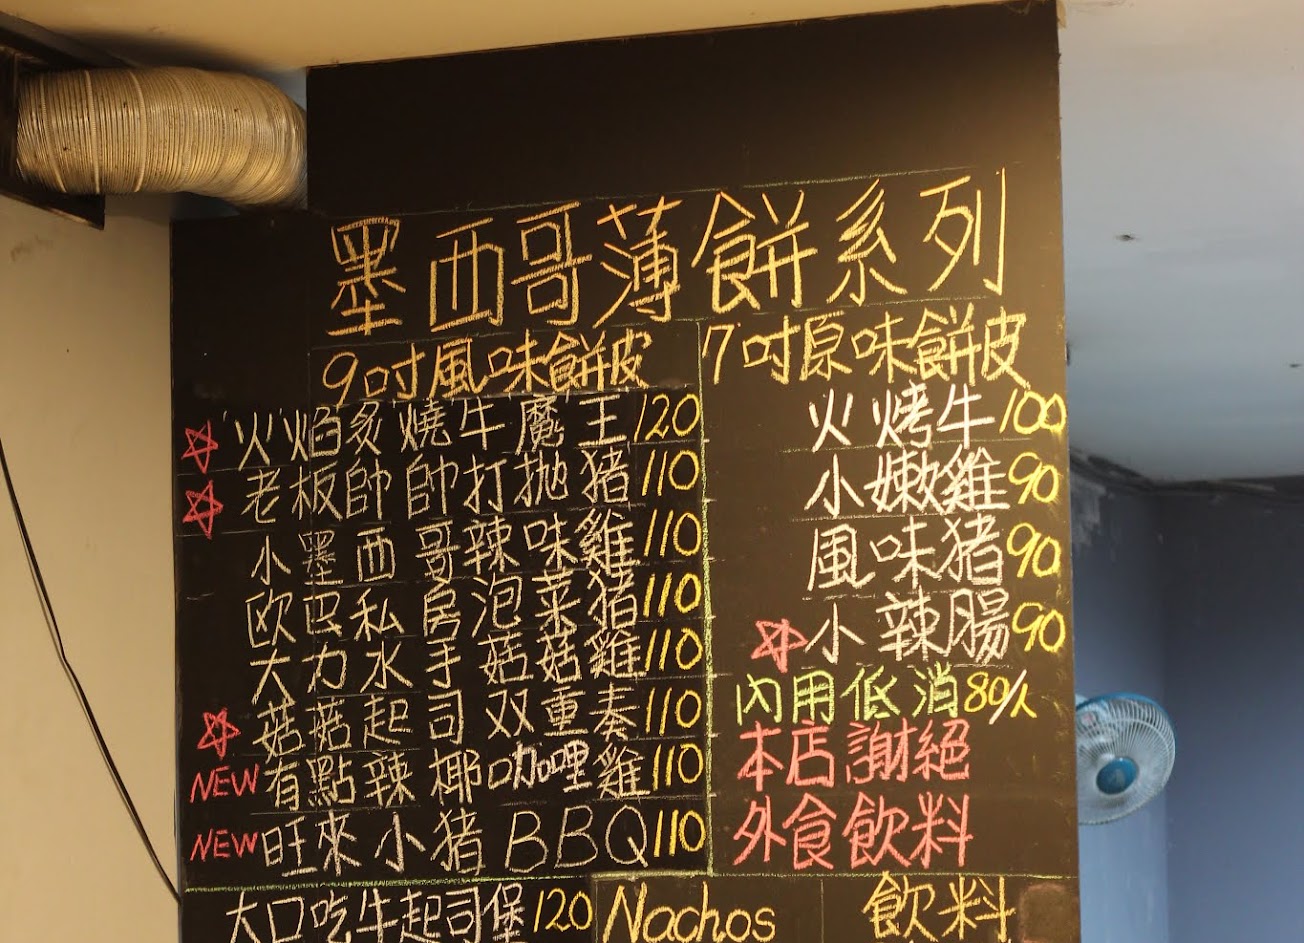 墨西哥薄餅系列
9吋風味餅皮
火焰炙燒牛魔王120
老板帥帥打拋豬110
小墨西哥辣味雞110
欧巴私房泡菜豬110
大力水手菇菇雞110
菇菇起司双重奏110
NEW有點辣椰咖哩雞110
NEW旺來小豬BBQ110
7吋原味餅皮
火烤牛100
小嫩雞90
風味豬90
小辣腸90
內用低消80/人
本店謝絕
外食飲料
大口吃牛起司堡120
Nachos
飲料